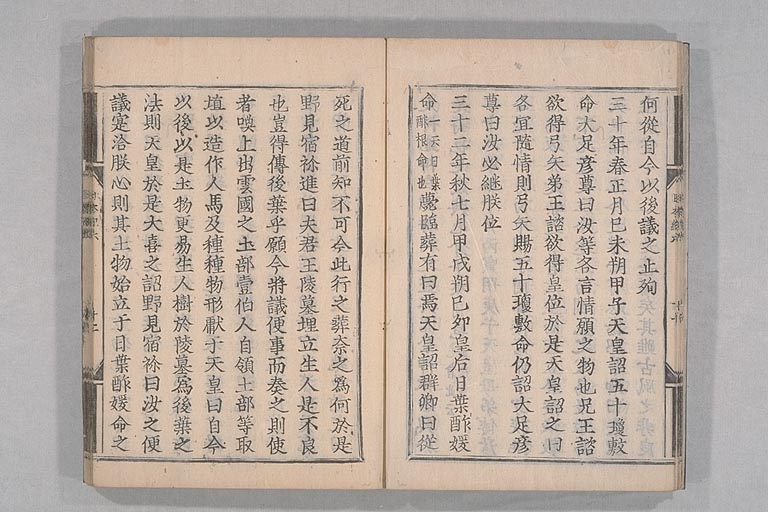 何從自今以後議之止殉
三十年春正月己未朔甲子天皇詔五十瓊敷
命大足彥尊曰汝等各言情願之物也兄王諮
欲得弓矢弟王諮欲得皇位於是天皇詔之曰
各宜隨情則弓矢賜五十瓊敷命仍詔大足彥
尊曰汝必繼朕位
三十二年秋七月甲戌朔己卯皇后日葉酢媛
命一云日葉酢根命也薨臨葬有日焉天皇詔群卿曰從
死之道前知不可今此行之葬奈之為何於是
野見宿祢進曰夫君王陵墓埋立生人是不良
也豈得傳後葉乎願今將議便事而奏之則使
者喚上出雲國之土部壹伯人自領土部等取
埴以造作人馬及種種物形獻于天皇曰自今
以後以是土物更易生人樹於陵墓為後葉之
法則天皇於是大喜之詔野見宿祢曰汝之便
議寔洽朕心則其土物始立于日葉酢媛命之